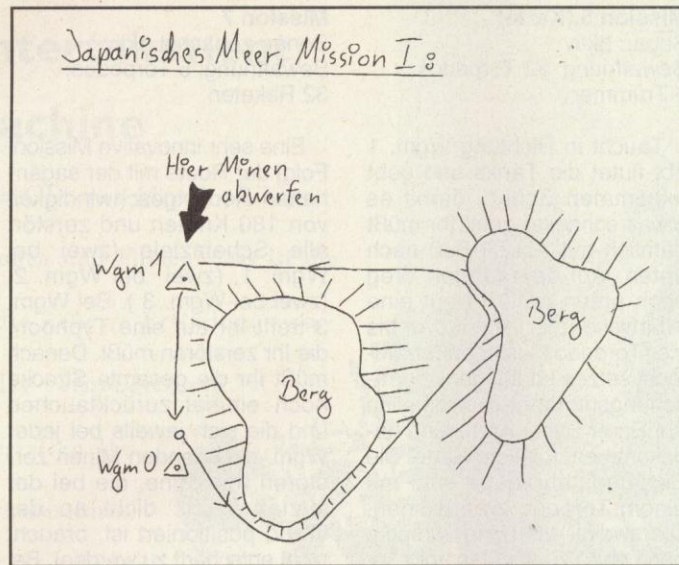 Japanisches Meer, Mission I:
Hier Minen
abwerfen
Wgm 1
Berg
Berg
Wgm 0